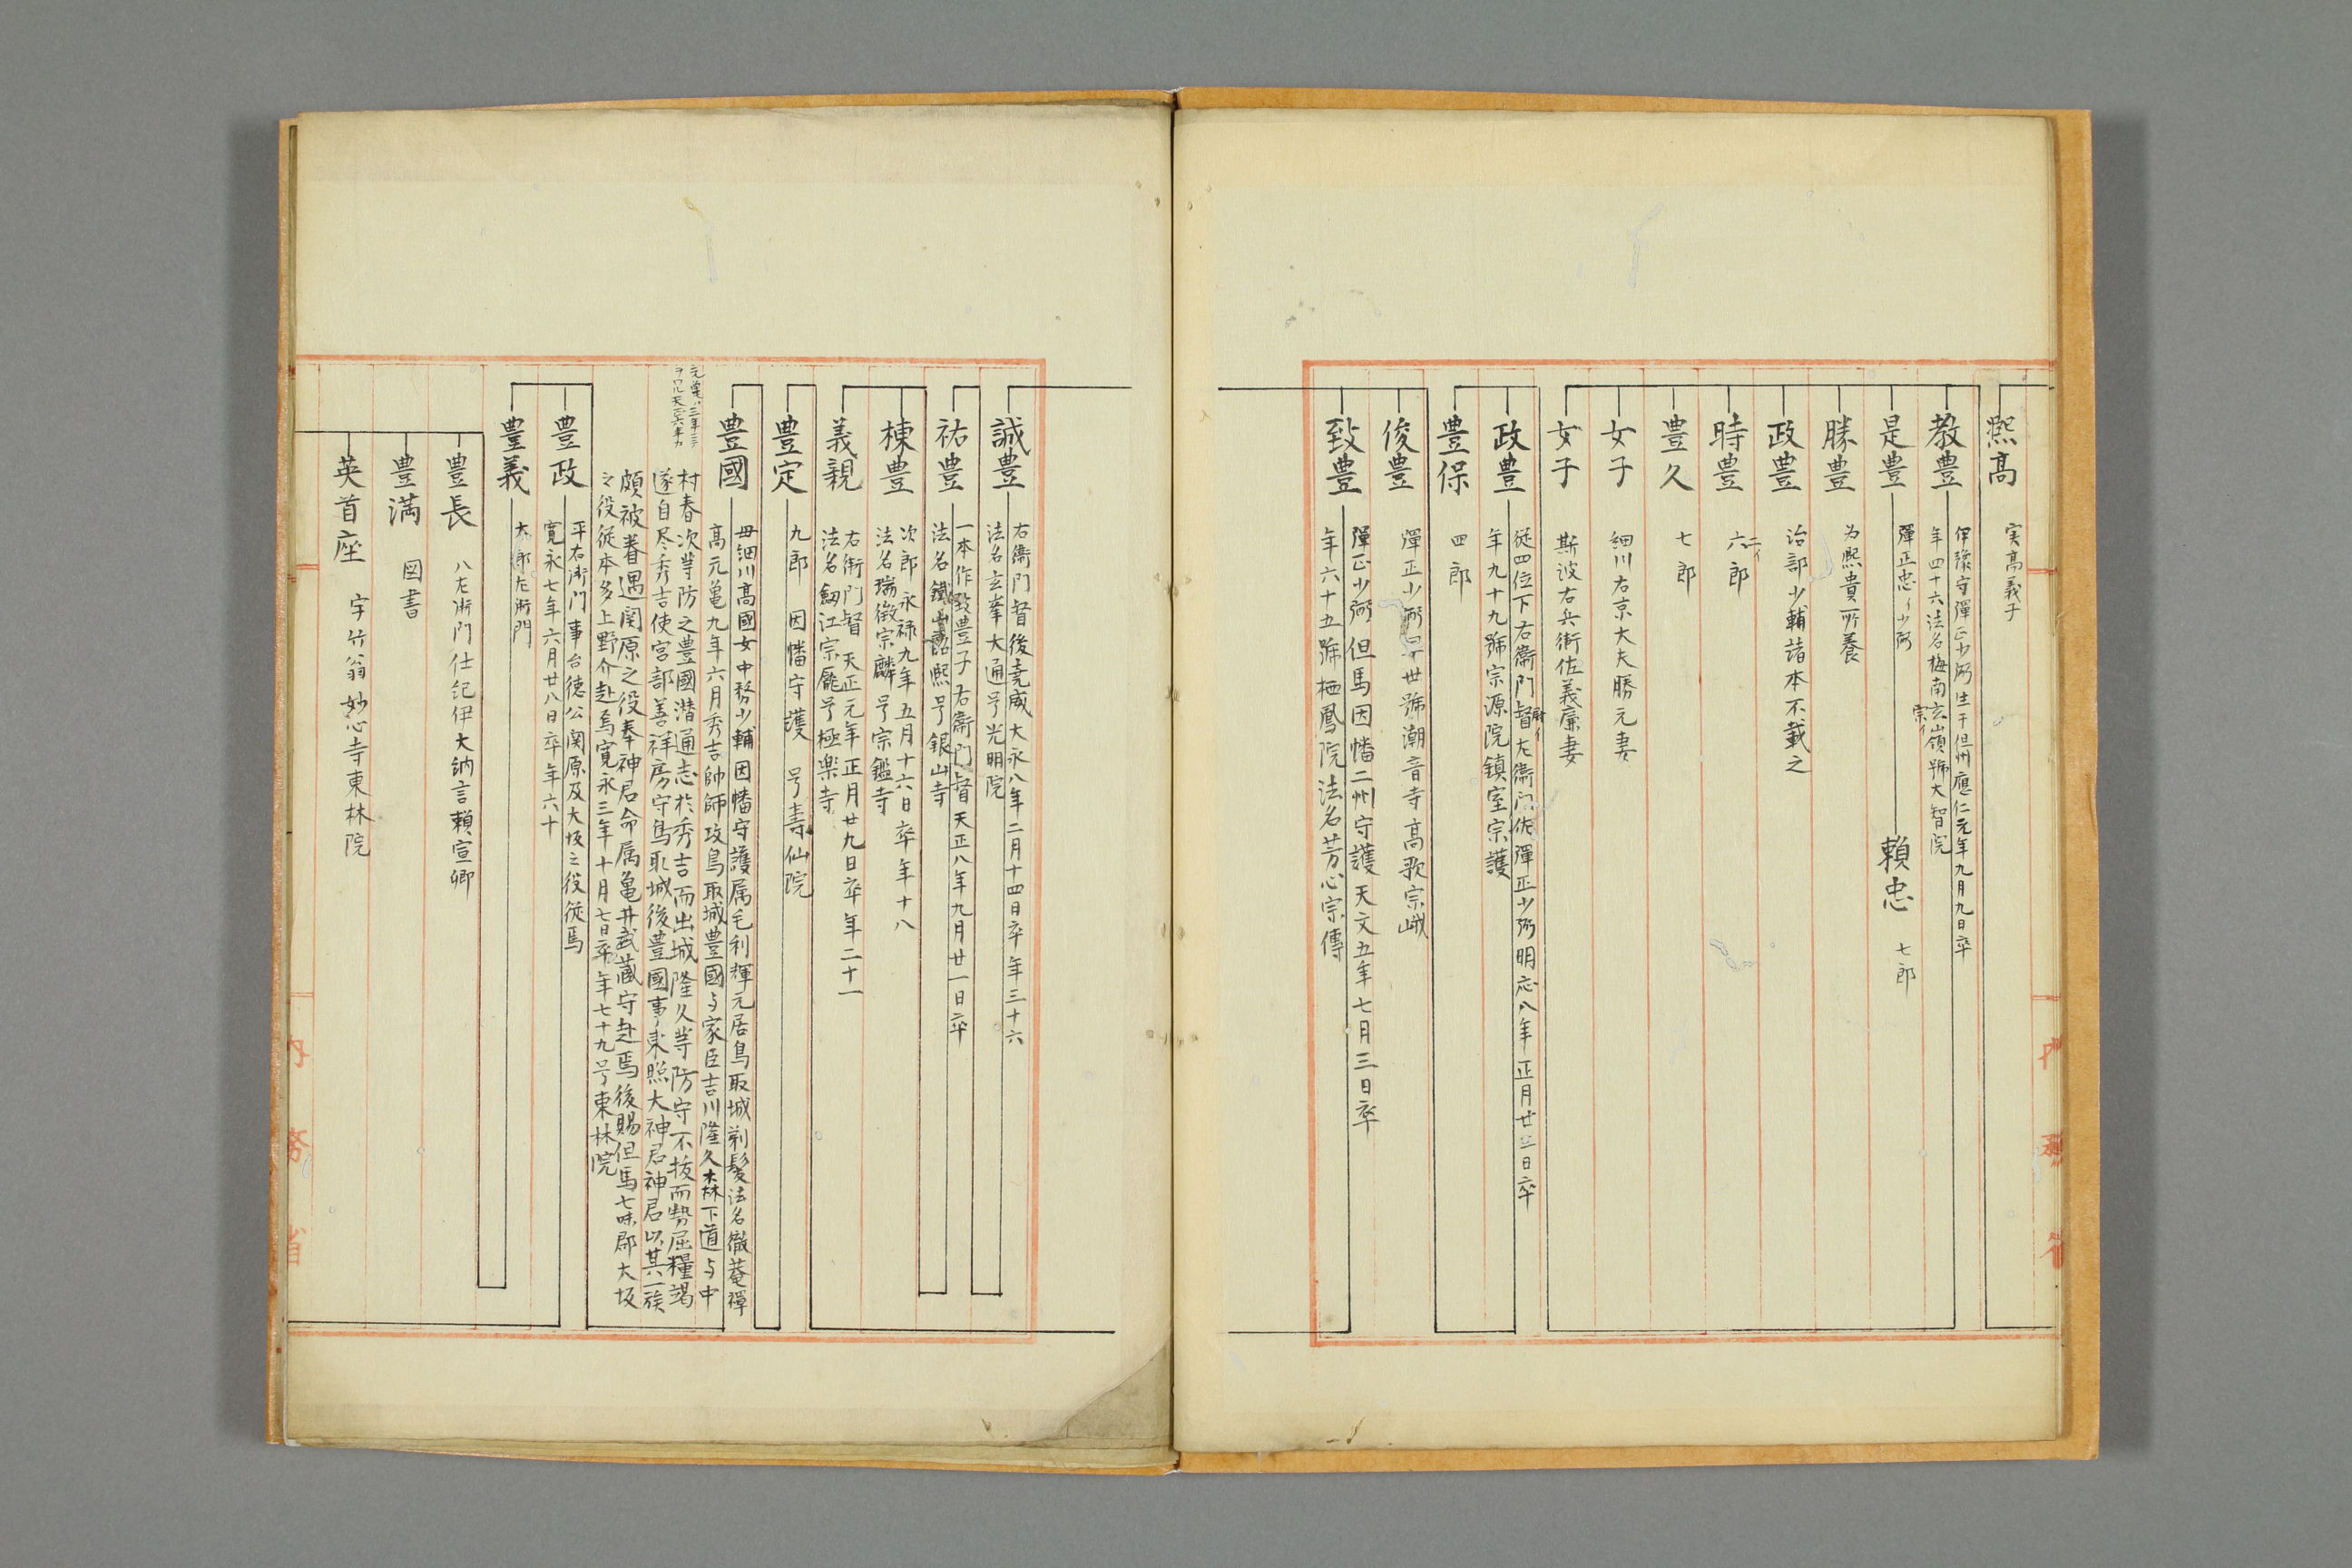 熈高
実高義子
教豊
伊豫守彈正少弼生于但州應仁元年九月九日卒
年四十六法名梅南玄嶺號大智院
宗イ
是豊
彈正忠少弼
頼忠
七郎
勝豊
为熈貴所養
政豊
治部少輔諸本不載之
時豊
六郎
二イ
豊久
七郎
女子
細川右京大夫勝元妻
女子
斯波右兵衛佐義廉妻
政豊
従四位下右衛門督左衛门佐彈正少弼明応八年正月廿三日卒
年九十九號宗源院鎮室宗護
豊保
四郎
俊豊
彈正少弼
世號潮音寺高歌宗峨
致豊
彈正少弼但馬因幡二州守護天文五年七月三日卒
年六十五號栖鳳院法名芳心宗傳
内務省
誠豊
右衛門督後尭威大永八年二月十四日卒年三十六
法名玄峯大通号光明院
祐豊
一本作致豊子右衛門督天正八年九月廿一日卒
法名鐵
熈号銀山寺
棟豊
次郎永禄九年五月十六日卒年十八
法名瑞徴宗麟号宗鑑寺
義親
右衛门督天正元年正月廿九日卒年二十一
法名劔江宗
号極楽寺
豊定
九郎因幡守護号壽仙院
豊國
母細川高國女中務少輔因幡守護属毛利輝元居鳥取城剃髪法名徹菴禪
高元亀九年六月秀吉帥師攻鳥取城豊國与家臣吉川隆久森下道与中
村春次等防之豊國潜通志於秀吉而出城隆久等防守不抜而勢屈糧竭
遂自尽秀吉使宮部善祥房守鳥取城後豊國事東照大神君神君以其一族
頗被眷遇関原之役奉神君命属亀井武藏守赴焉後賜但馬七味郡大坂
之役従本多上野介赴焉寛永三年十月七日卒年七十九号東林院
豊政
平右衛門事台徳公関原及大坂之役従焉
寛永七年六月廿八日卒年六十
豊義
太郎左衛門
豊長
八左衛門仕紀伊大納言頼宣卿
豊満
図書
英首座
字竹翁妙心寺東林院
内務省